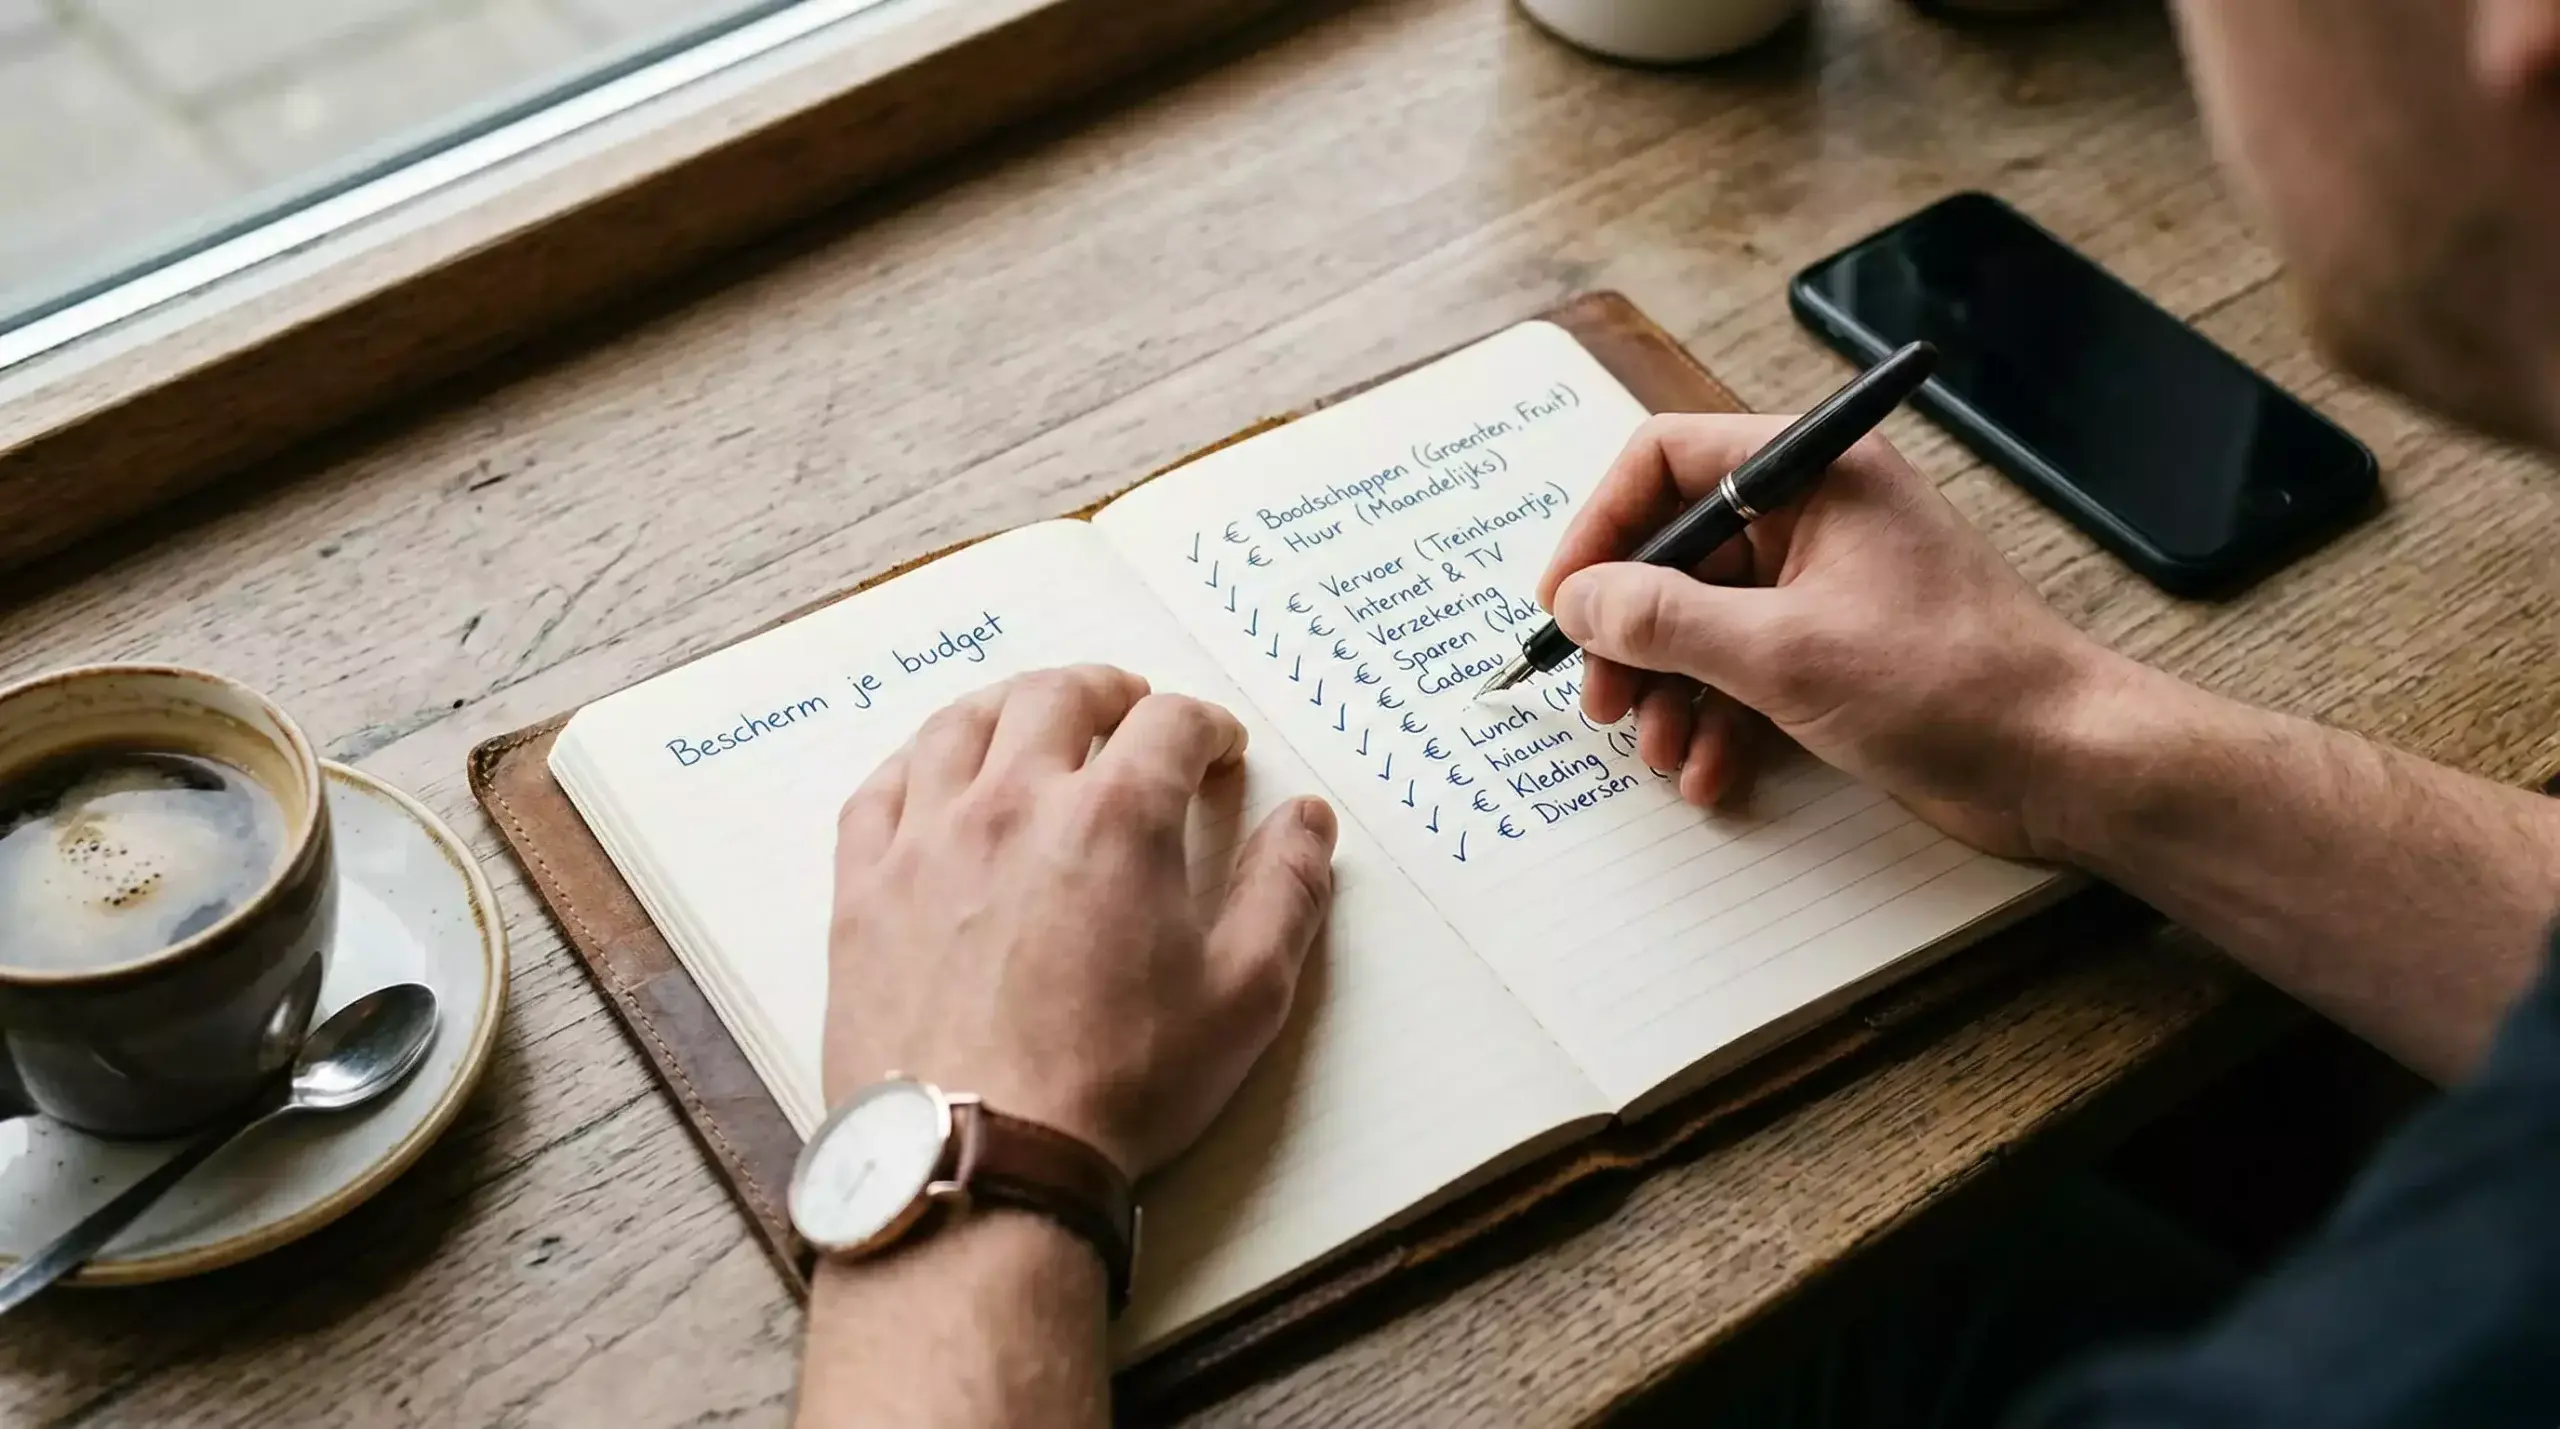 Bescherm je budget
✓ € Boodschappen (Groenten, Fruit)
✓ € Huur (Maandelijks)
✓ € Vervoer (Treinkaartje)
✓ € Internet & TV
✓ € Verzekering
✓ € Sparen (Vak
✓ € Cadeau
✓ €
✓ € Lunch (M
✓ €
✓ € Kleding (N
✓ € Diversen (